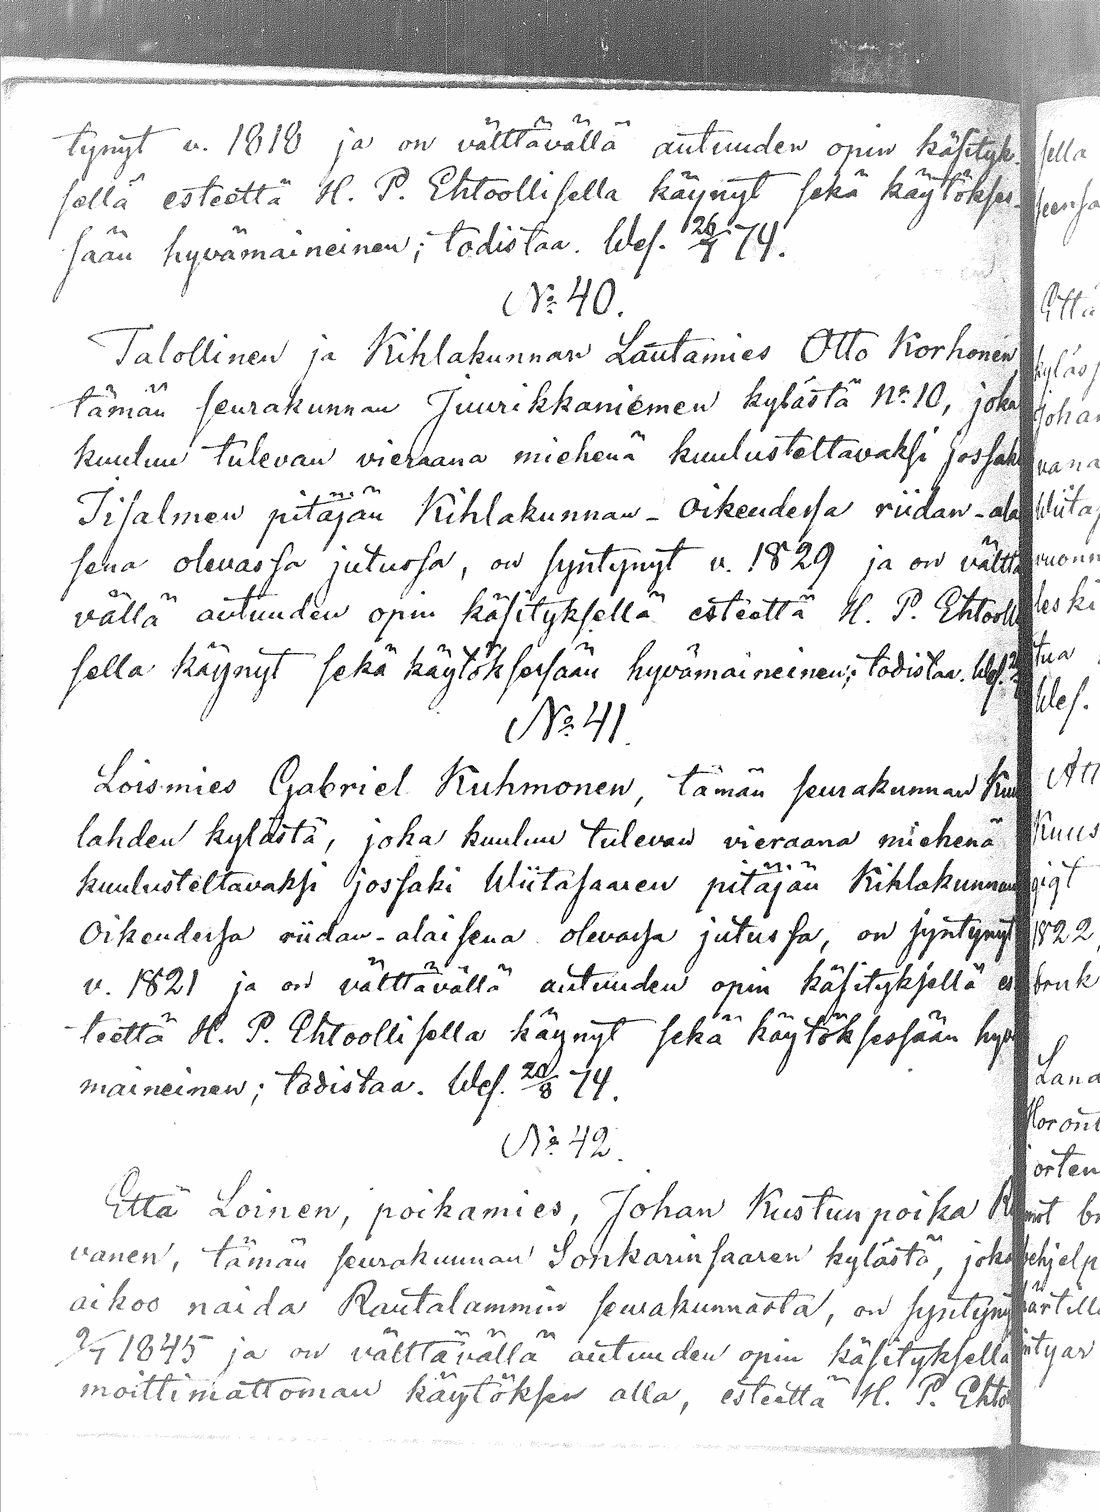 tynyt v. 1818 ja on välttävällä autuuden opin käsityk-
sellä esteettä H. P. Ehtoollisella käynyt sekä käytökses-
sään hyvämaineinen; todistaa. Wes. 26/7 74.
No 40.
Talollinen ja Kihlakunnan Lautamies Otto Korhonen
tämän seurakunnan Juurikkaniemen kylästä No 10, joka
kuuluu tulevan vieraana miehenä kuulusteltavaksi jossaki
Iisalmen pitäjän Kihlakunnan-Oikeudessa riidan-alai
sena olevassa jutussa, on syntynyt v. 1829 ja on vältta
vällä autuuden opin käsityksellä esteettä H. P. Ehtoolli
sella käynyt sekä käytöksessään hyvämaineinen; todistaa. Wes.
No 41.
Loismies Gabriel Kuhmonen, tämän seurakunnan Kuu
lahden kylästä, joka kuuluu tulevan vieraana miehenä
kuulusteltavaksi jossaki Wiitasaaren pitäjän Kihlakunnan
Oikeudessa riidan-alaisena olevassa jutussa, on syntynyt
v. 1821 ja on välttävällä autuuden opin käsityksellä es
teettä H. P. Ehtoollisella käynyt sekä käytöksessään hyv
maineinen; todistaa. Wes. 20/8 74.
No 42.
Että Loinen, poikamies, Johan Kustunpoika R
vanen, tämän seurakunnan Sonkarinsaaren kylästä, joka
aikoo naida Rautalammin seurakunnasta, on syntynyt
9/7 1845 ja on välttävällä autuuden opin käsityksellä
moittimattoman käytöksen alla, esteettä H. P. Ehto
sella
Että
kyläs
Johan
vana
Wiitas
vuonn
leski
tua
Wes.
Att
Kuus
gigt
1822,
bruk
Land
Horont
orten
mot br
behjelp